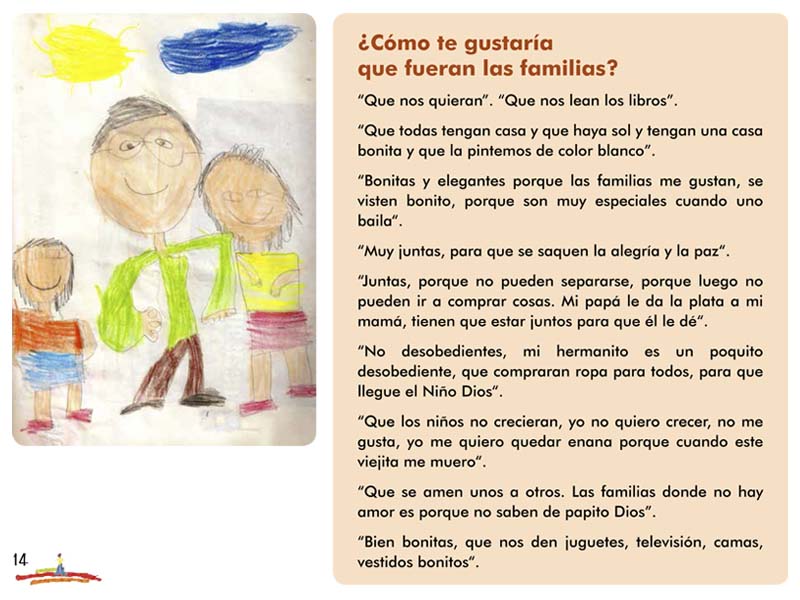 ¿Cómo te gustaría
que fueran las familias?
“Que nos quieran”. “Que nos lean los libros”.
“Que todas tengan casa y que haya sol y tengan una casa
bonita y que la pintemos de color blanco”.
“Bonitas y elegantes porque las familias me gustan, se
visten bonito, porque son muy especiales cuando uno
baila“.
“Muy juntas, para que se saquen la alegría y la paz“.
“Juntas, porque no pueden separarse, porque luego no
pueden ir a comprar cosas. Mi papá le da la plata a mi
mamá, tienen que estar juntos para que él le dé“.
“No desobedientes, mi hermanito es un poquito
desobediente, que compraran ropa para todos, para que
llegue el Niño Dios“.
“Que los niños no crecieran, yo no quiero crecer, no me
gusta, yo me quiero quedar enana porque cuando este
viejita me muero“.
“Que se amen unos a otros. Las familias donde no hay
amor es porque no saben de papito Dios”.
“Bien bonitas, que nos den juguetes, televisión, camas,
vestidos bonitos“.
14